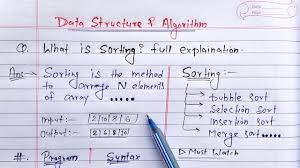 Data Structure & Algorithm
Q. What is Sorting? full explaination.
Ans → Sorting is the method
to arrange N elements
of array G.....
Sorting:-
bubble sort
Selection sort
Insertion sort
Merge sort....
Input: 2 10 8 6
Output: 2 6 8 10
#. Program Syntax
▷ Must Watch